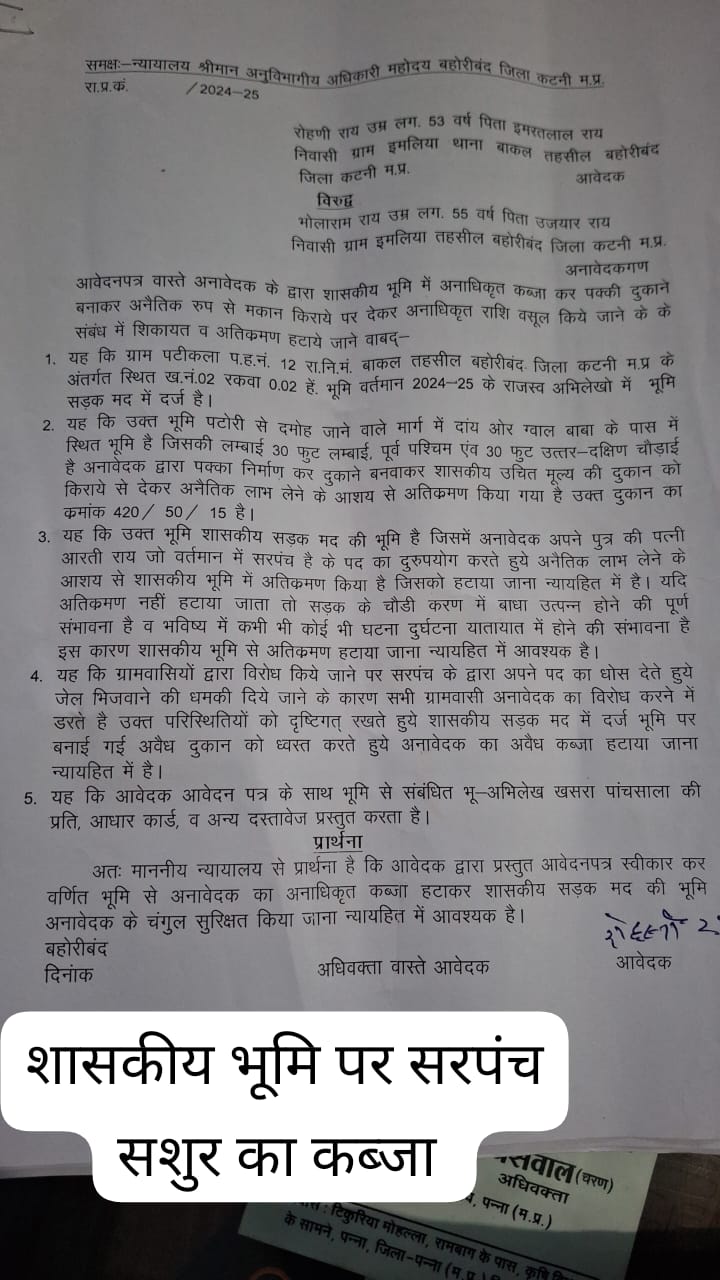 समक्षः–न्यायालय श्रीमान अनुविभागीय अधिकारी महोदय बहोरीबंद जिला कटनी म.प्र.
रा.प्र.कं. /2024–25
रोहणी राय उम्र लग. 53 वर्ष पिता इमरतलाल राय
निवासी ग्राम इमलिया थाना बाकल तहसील बहोरीबंद
जिला कटनी म.प्र. आवेदक
विरुद्ध
भोलाराम राय उम्र लग. 55 वर्ष पिता उजयार राय
निवासी ग्राम इमलिया तहसील बहोरीबंद जिला कटनी म.प्र.
अनावेदकगण
आवेदनपत्र वास्ते अनावेदक के द्वारा शासकीय भूमि में अनाधिकृत कब्जा कर पक्की दुकाने
बनाकर अनैतिक रुप से मकान किराये पर देकर अनाधिकृत राशि वसूल किये जाने के के
संबंध में शिकायत व अतिक्रमण हटाये जाने वाबद्–
1. यह कि ग्राम पटीकला प.ह.नं. 12 रा.नि.मं. बाकल तहसील बहोरीबंद जिला कटनी म.प्र के
अंतर्गत स्थित ख.नं.02 रकवा 0.02 हें. भूमि वर्तमान 2024–25 के राजस्व अभिलेखो में भूमि
सड़क मद में दर्ज है।
2. यह कि उक्त भूमि पटोरी से दमोह जाने वाले मार्ग में दांय ओर ग्वाल बाबा के पास में
स्थित भूमि है जिसकी लम्बाई 30 फुट लम्बाई, पूर्व पश्चिम एंव 30 फुट उत्तर–दक्षिण चौड़ाई
है अनावेदक द्वारा पक्का निर्माण कर दुकाने बनवाकर शासकीय उचित मूल्य की दुकान को
किराये से देकर अनैतिक लाभ लेने के आशय से अतिक्रमण किया गया है उक्त दुकान का
क्रमांक 420/ 50/ 15 है।
3. यह कि उक्त भूमि शासकीय सड़क मद की भूमि है जिसमें अनावेदक अपने पुत्र की पत्नी
आरती राय जो वर्तमान में सरपंच है के पद का दुरुपयोग करते हुये अनैतिक लाभ लेने के
आशय से शासकीय भूमि में अतिक्रमण किया है जिसको हटाया जाना न्यायहित में है। यदि
अतिक्रमण नहीं हटाया जाता तो सड़क के चौडी करण में बाधा उत्पन्न होने की पूर्ण
संभावना है व भविष्य में कभी भी कोई भी घटना दुर्घटना यातायात में होने की संभावना है
इस कारण शासकीय भूमि से अतिक्रमण हटाया जाना न्यायहित में आवश्यक है।
4. यह कि ग्रामवासियों द्वारा विरोध किये जाने पर सरपंच के द्वारा अपने पद का धोस देते हुये
जेल भिजवाने की धमकी दिये जाने के कारण सभी ग्रामवासी अनावेदक का विरोध करने में
डरते है उक्त परिस्थितियों को दृष्टिगत् रखते हुये शासकीय सड़क मद में दर्ज भूमि पर
बनाई गई अवैध दुकान को ध्वस्त करते हुये अनावेदक का अवैध कब्जा हटाया जाना
न्यायहित में है।
5. यह कि आवेदक आवेदन पत्र के साथ भूमि से संबंधित भू–अभिलेख खसरा पांचसाला की
प्रति, आधार कार्ड, व अन्य दस्तावेज प्रस्तुत करता है।
प्रार्थना
अतः माननीय न्यायालय से प्रार्थना है कि आवेदक द्वारा प्रस्तुत आवेदनपत्र स्वीकार कर
वर्णित भूमि से अनावेदक का अनाधिकृत कब्जा हटाकर शासकीय सड़क मद की भूमि
अनावेदक के चंगुल सुरिक्षत किया जाना न्यायहित में आवश्यक है।
बहोरीबंद
दिनांक अधिवक्ता वास्ते आवेदक आवेदक
शासकीय भूमि पर सरपंच
सशुर का कब्जा
(चरण)
अधिवक्ता
पन्ना (म.प्र.)
टिकुरिया मोहल्ला, रामबाग के पास, कृषि
के सामने, पन्ना, जिला-पन्ना (म.प्र.)